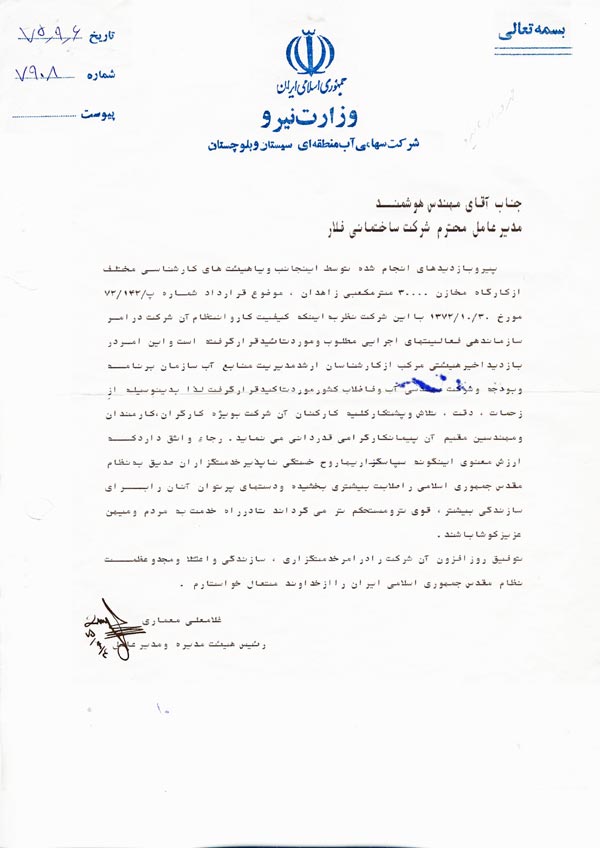 بسمه تعالی
جمهوری اسلامی ایران
وزارت نیرو
شرکت سهامی آب منطقه‌ای سیستان و بلوچستان
تاریخ ۷۵،۹،۶
شماره ۷۹۰۸
پیوست
جناب آقای مهندس هوشمند
مدیر عامل محترم شرکت ساختمانی فلار
پیرو بازدیدهای انجام شده توسط اینجانب و یا هیئت های کارشناسی مختلف
از کارگاه مخازن ۳۰۰۰۰ متر مکعبی زاهدان ، موضوع قرارداد شماره پ/۷۳/۱۴۲
مورخ ۱۳۷۳/۱۰/۳۰ با این شرکت نظر به اینکه کیفیت کار و انتظام آن شرکت در امر
سازماندهی فعالیتهای اجرایی مطلوب و مورد تائید قرار گرفته است و این امر در
بازدید اخیر هیئتی مرکب از کارشناسان ارشد مدیریت منابع آب سازمان برنامه
و بودجه و شرکت آب و فاضلاب کشور مورد تاکید قرار گرفت لذا بدینوسیله از
زحمات ، دقت ، تلاش و پشتکار کلیه کارکنان آن شرکت بویژه کارگران ، کارمندان
و مهندسین مقیم آن پیمانکار گرامی قدردانی می نماید . رجاء واثق دارد که
ارزش معنوی اینگونه سپاسگزاریها روح خستگی ناپذیر خدمتگزاران صدیق به نظام
مقدس جمهوری اسلامی را صلابت بیشتری بخشیده و دستهای پرتوان آنان را برای
سازندگی بیشتر ، قوی تر و مستحکم تر می گرداند تا در راه خدمت به مردم و میهن
عزیز کوشا باشند .
توفیق روز افزون آن شرکت را در امر خدمتگزاری ، سازندگی و اعتلا و مجد و عظمت
نظام مقدس جمهوری اسلامی ایران را از خداوند متعال خواستارم .
غلامعلی معماری
رئیس هیئت مدیره و مدیر عامل
۷۵/۹/۶
۱۰